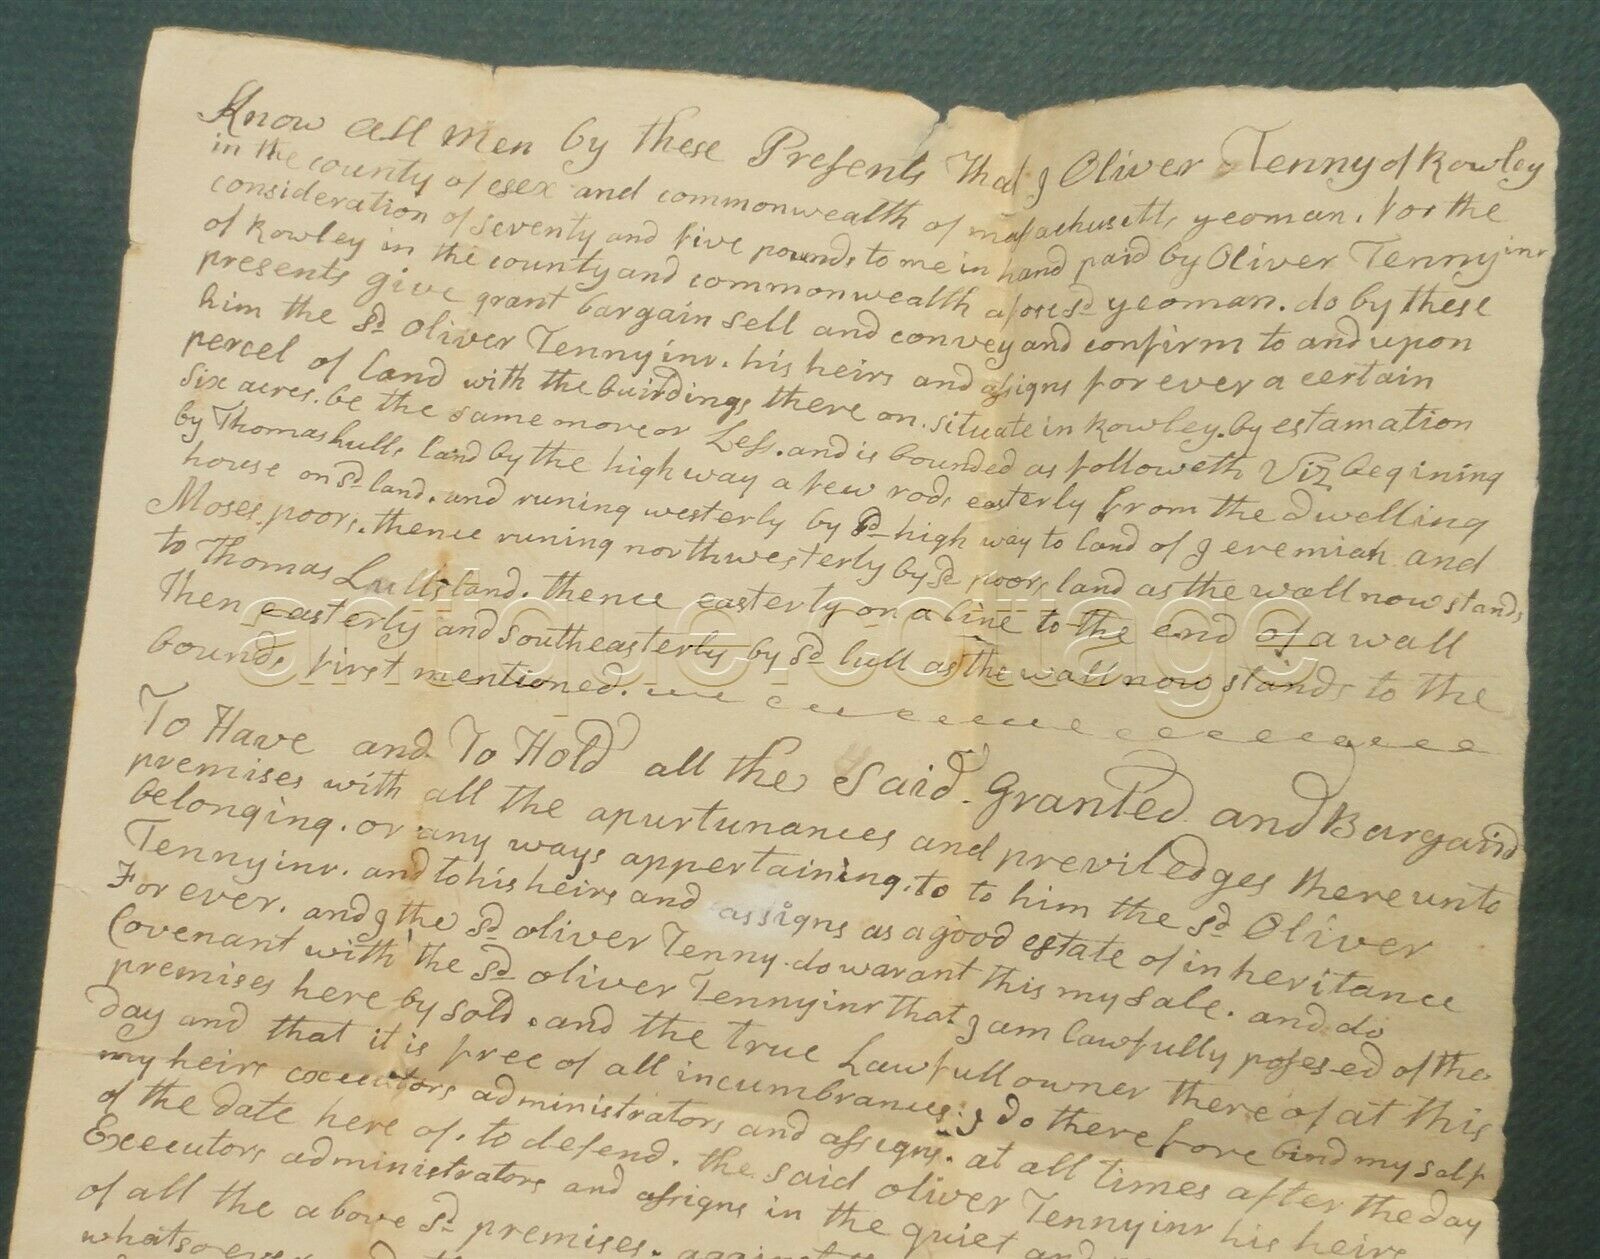 Know All Men by these Presents That I Oliver Tenny of Rowley
in the county of esex and commonwealth of massachusetts yeoman. For the
consideration of seventy and five pounds to me in hand paid by Oliver Tenny inr
of Rowley in the county and commonwealth afore sd yeoman. do by these
presents give grant bargain sell and convey and confirm to and upon
him the sd Oliver Tenny inr. his heirs and assigns for ever a certain
percel of land with the buirdings there on. situate in Rowley. by estamation
six acres. be the same more or Less. and is bounded as followeth Viz begining
by Thomas hulls land by the high way a few rods easterly from the dwelling
house on sd land. and runing westerly by sd high way to land of Jeremiah and
Moses poors. thence runing northwesterly by sd poors land as the wall now stands
to Thomas Lulls land. thence easterly on a line to the end of a wall
Then easterly and southeasterly by sd lull as the wall now stands to the
bounds first mentioned.
To Have and To Hold all the Said Granted and Bargaind
premises with all the apurtunances and previledges there unto
belonging. or any ways appertaining. to to him the sd Oliver
Tenny inr. and to his heirs and assigns as a good estate of inheritance
For ever. and I the sd oliver Tenny do warant this my sale. and do
Covenant with the sd oliver Tenny inr that I am lawfully posesed of the
premises here by sold. and the true Lawfull owner there of at this
day and that it is free of all incumbrances. I do there fore bind my self
my heirs executors administrators and assigns. at all times after the day
of the date here of. to defend. the said oliver Tenny inr his heirs
Executors administrators and assigns in the quiet and
of all the above sd premises. against
whatsoever
antique.cottage